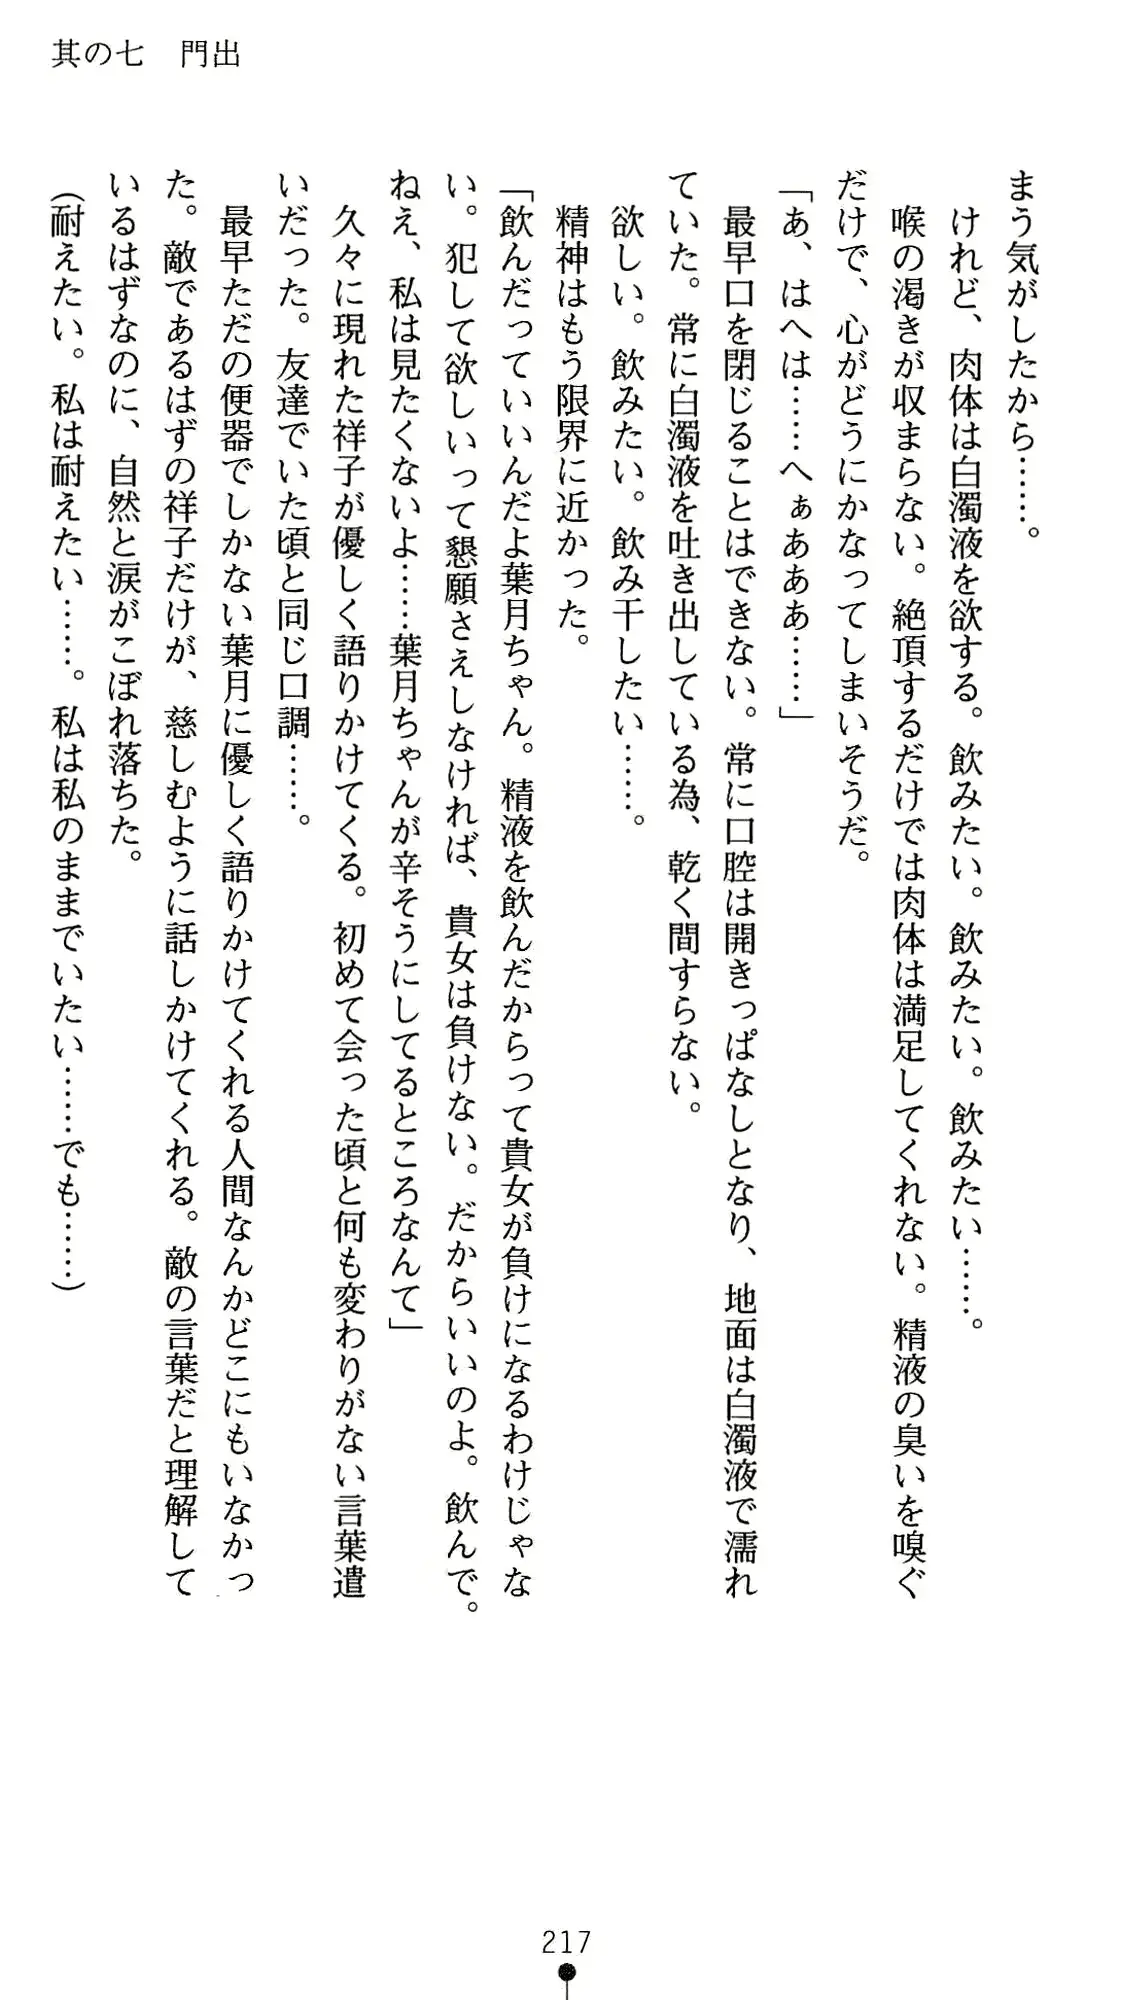 其の七　門出
まう気がしたから……。
けれど、肉体は白濁液を欲する。飲みたい。飲みたい。飲みたい……。
喉の渇きが収まらない。絶頂するだけでは肉体は満足してくれない。精液の臭いを嗅ぐ
だけで、心がどうにかなってしまいそうだ。
「あ、はへは……へぁあああ……」
最早口を閉じることはできない。常に口腔は開きっぱなしとなり、地面は白濁液で濡れ
ていた。常に白濁液を吐き出している為、乾く間すらない。
欲しい。飲みたい。飲み干したい……。
精神はもう限界に近かった。
「飲んだっていいんだよ葉月ちゃん。精液を飲んだからって貴女が負けになるわけじゃな
い。犯して欲しいって懇願さえしなければ、貴女は負けない。だからいいのよ。飲んで。
ねえ、私は見たくないよ……葉月ちゃんが辛そうにしてるところなんて」
久々に現れた祥子が優しく語りかけてくる。初めて会った頃と何も変わりがない言葉遣
いだった。友達でいた頃と同じ口調……。
最早ただの便器でしかない葉月に優しく語りかけてくれる人間なんかどこにもいなかっ
た。敵であるはずの祥子だけが、慈しむように話しかけてくれる。敵の言葉だと理解して
いるはずなのに、自然と涙がこぼれ落ちた。
（耐えたい。私は耐えたい……。私は私のままでいたい……でも……）
217